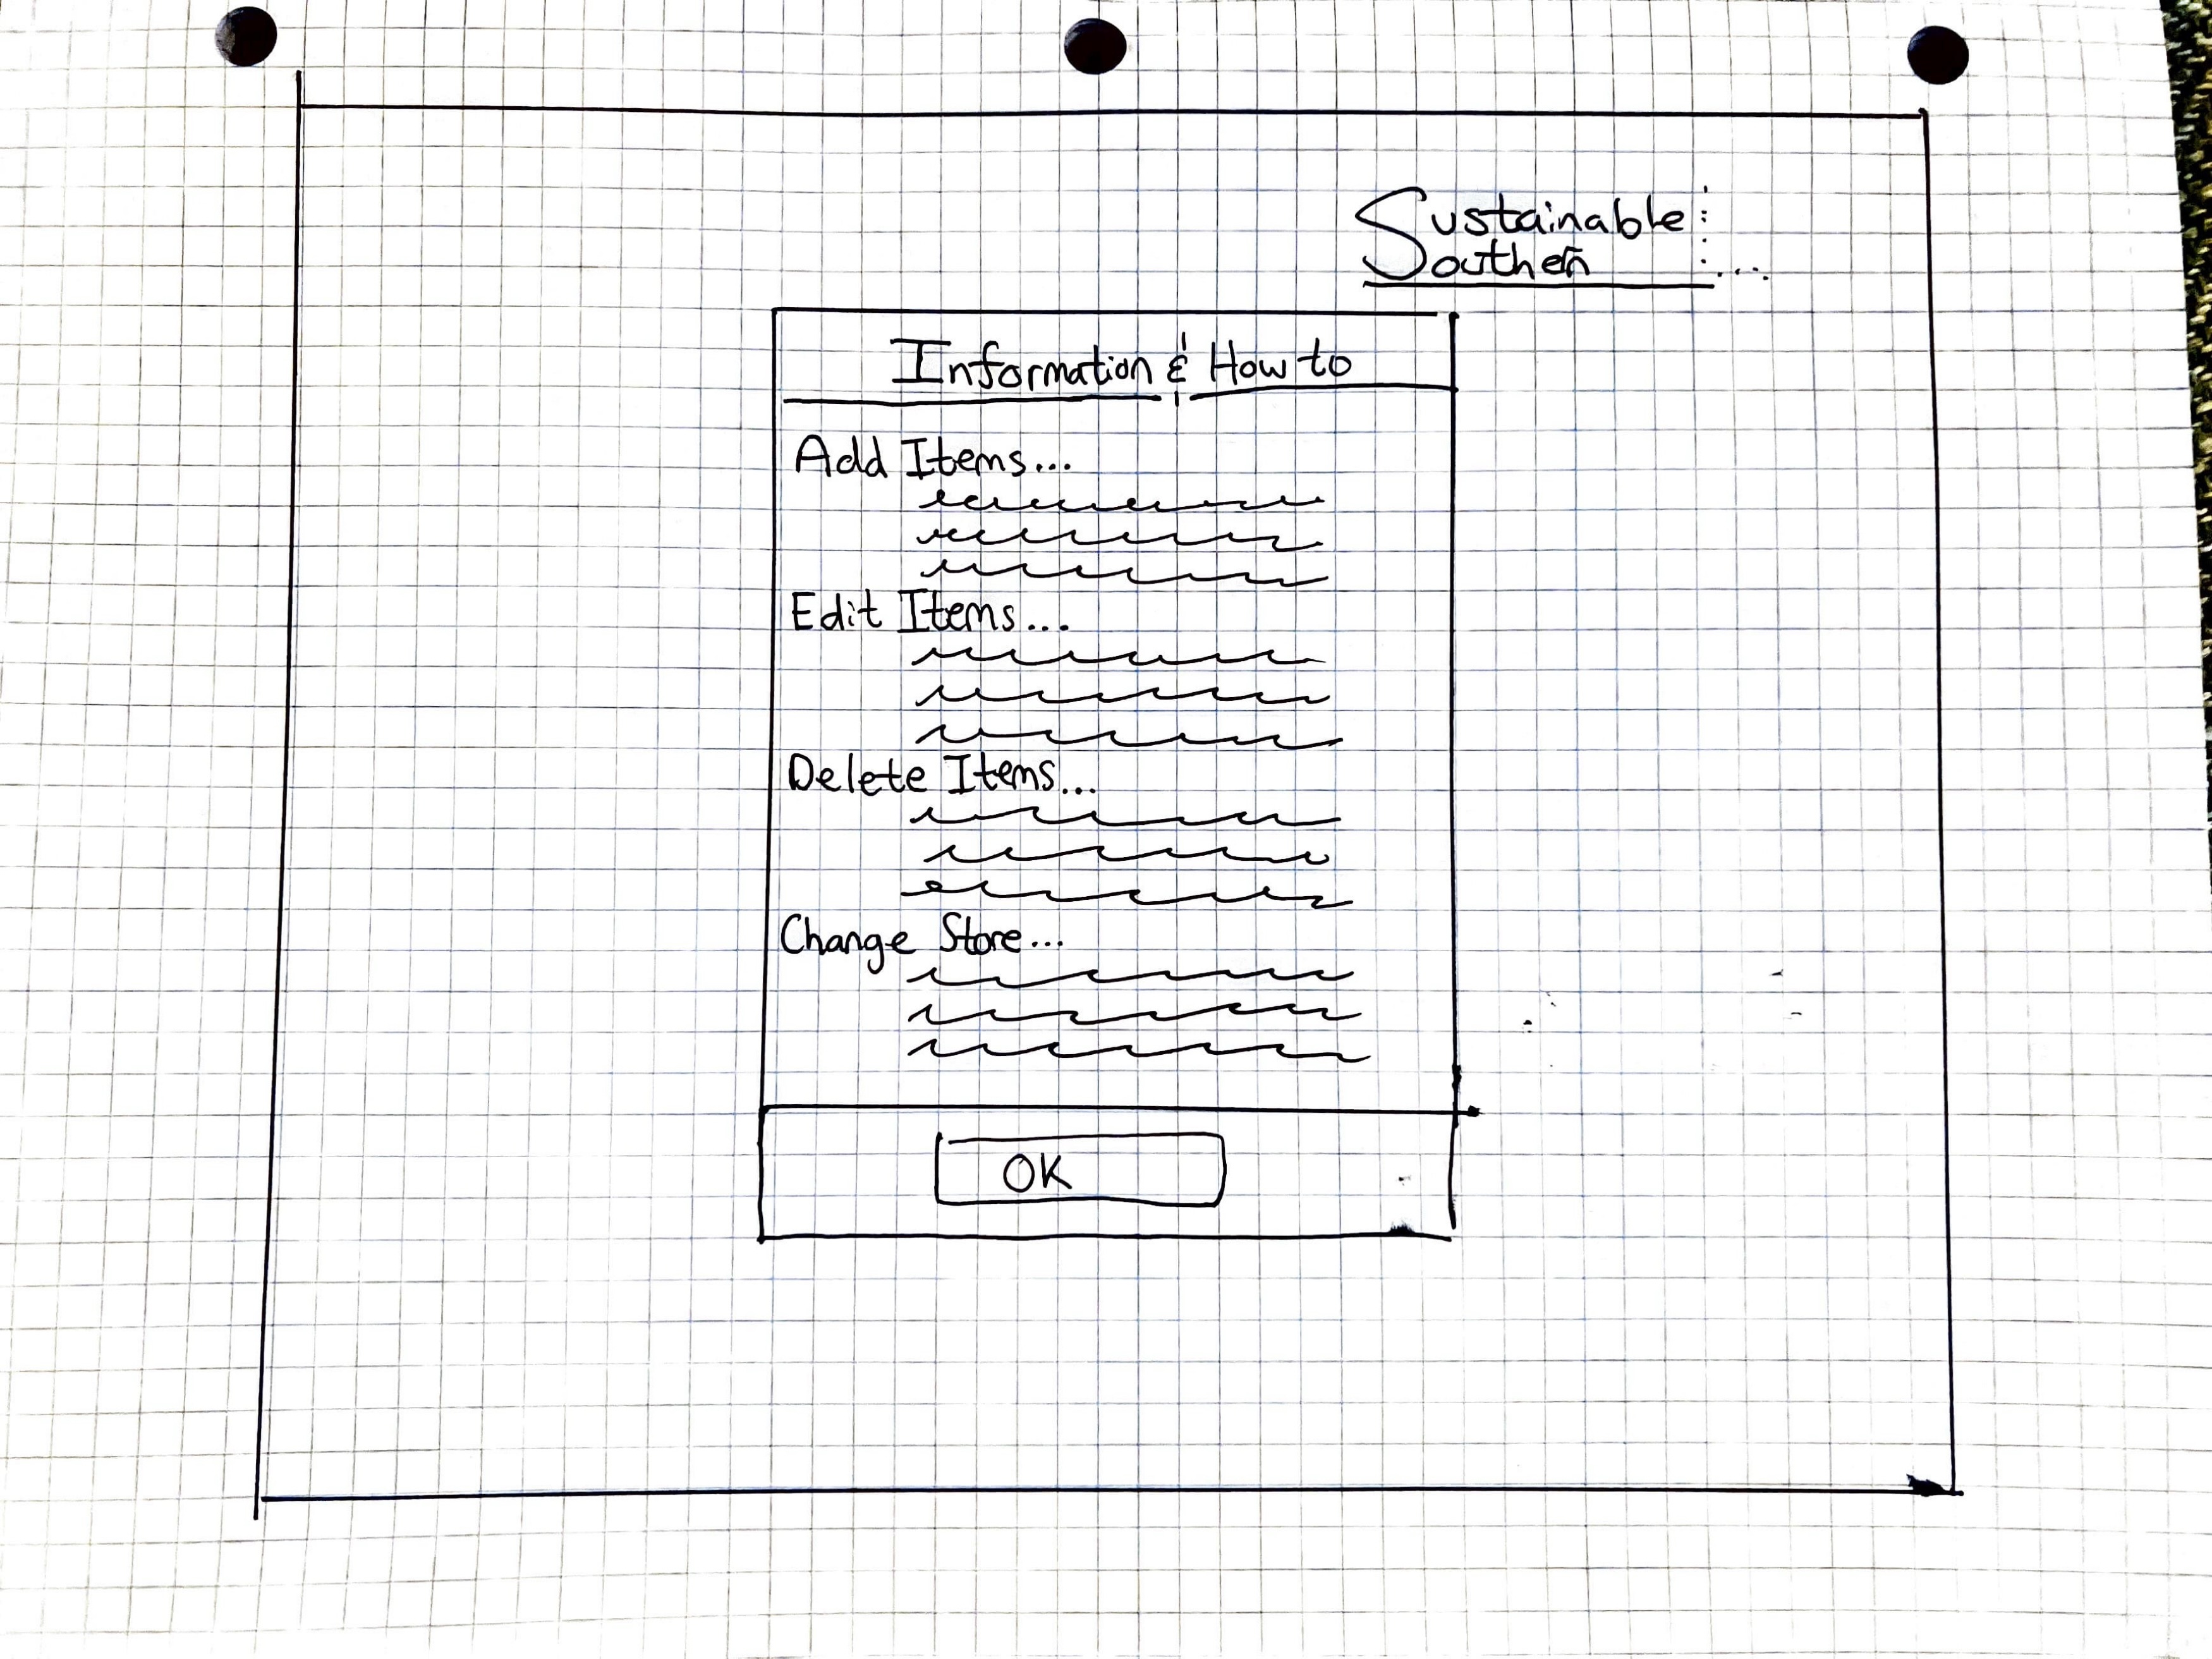 Sustainable
Southern
Information & How to
Add Items...
Edit Items...
Delete Items...
Change Store...
OK